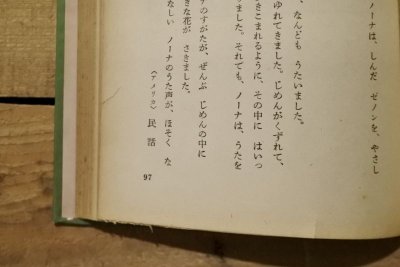 ノーナは、しんだ ゼノンを、やさし
、なんども うたいました。
ゆれてきました。じめんがくずれて、
きこまれるように、その中に はいっ
ました。それでも、ノーナは、うたを
のすがたが、ぜんぶ じめんの中に
きな花が さきました。
なしい ノーナのうた声が、ほそく な
（アメリカ）民話
97